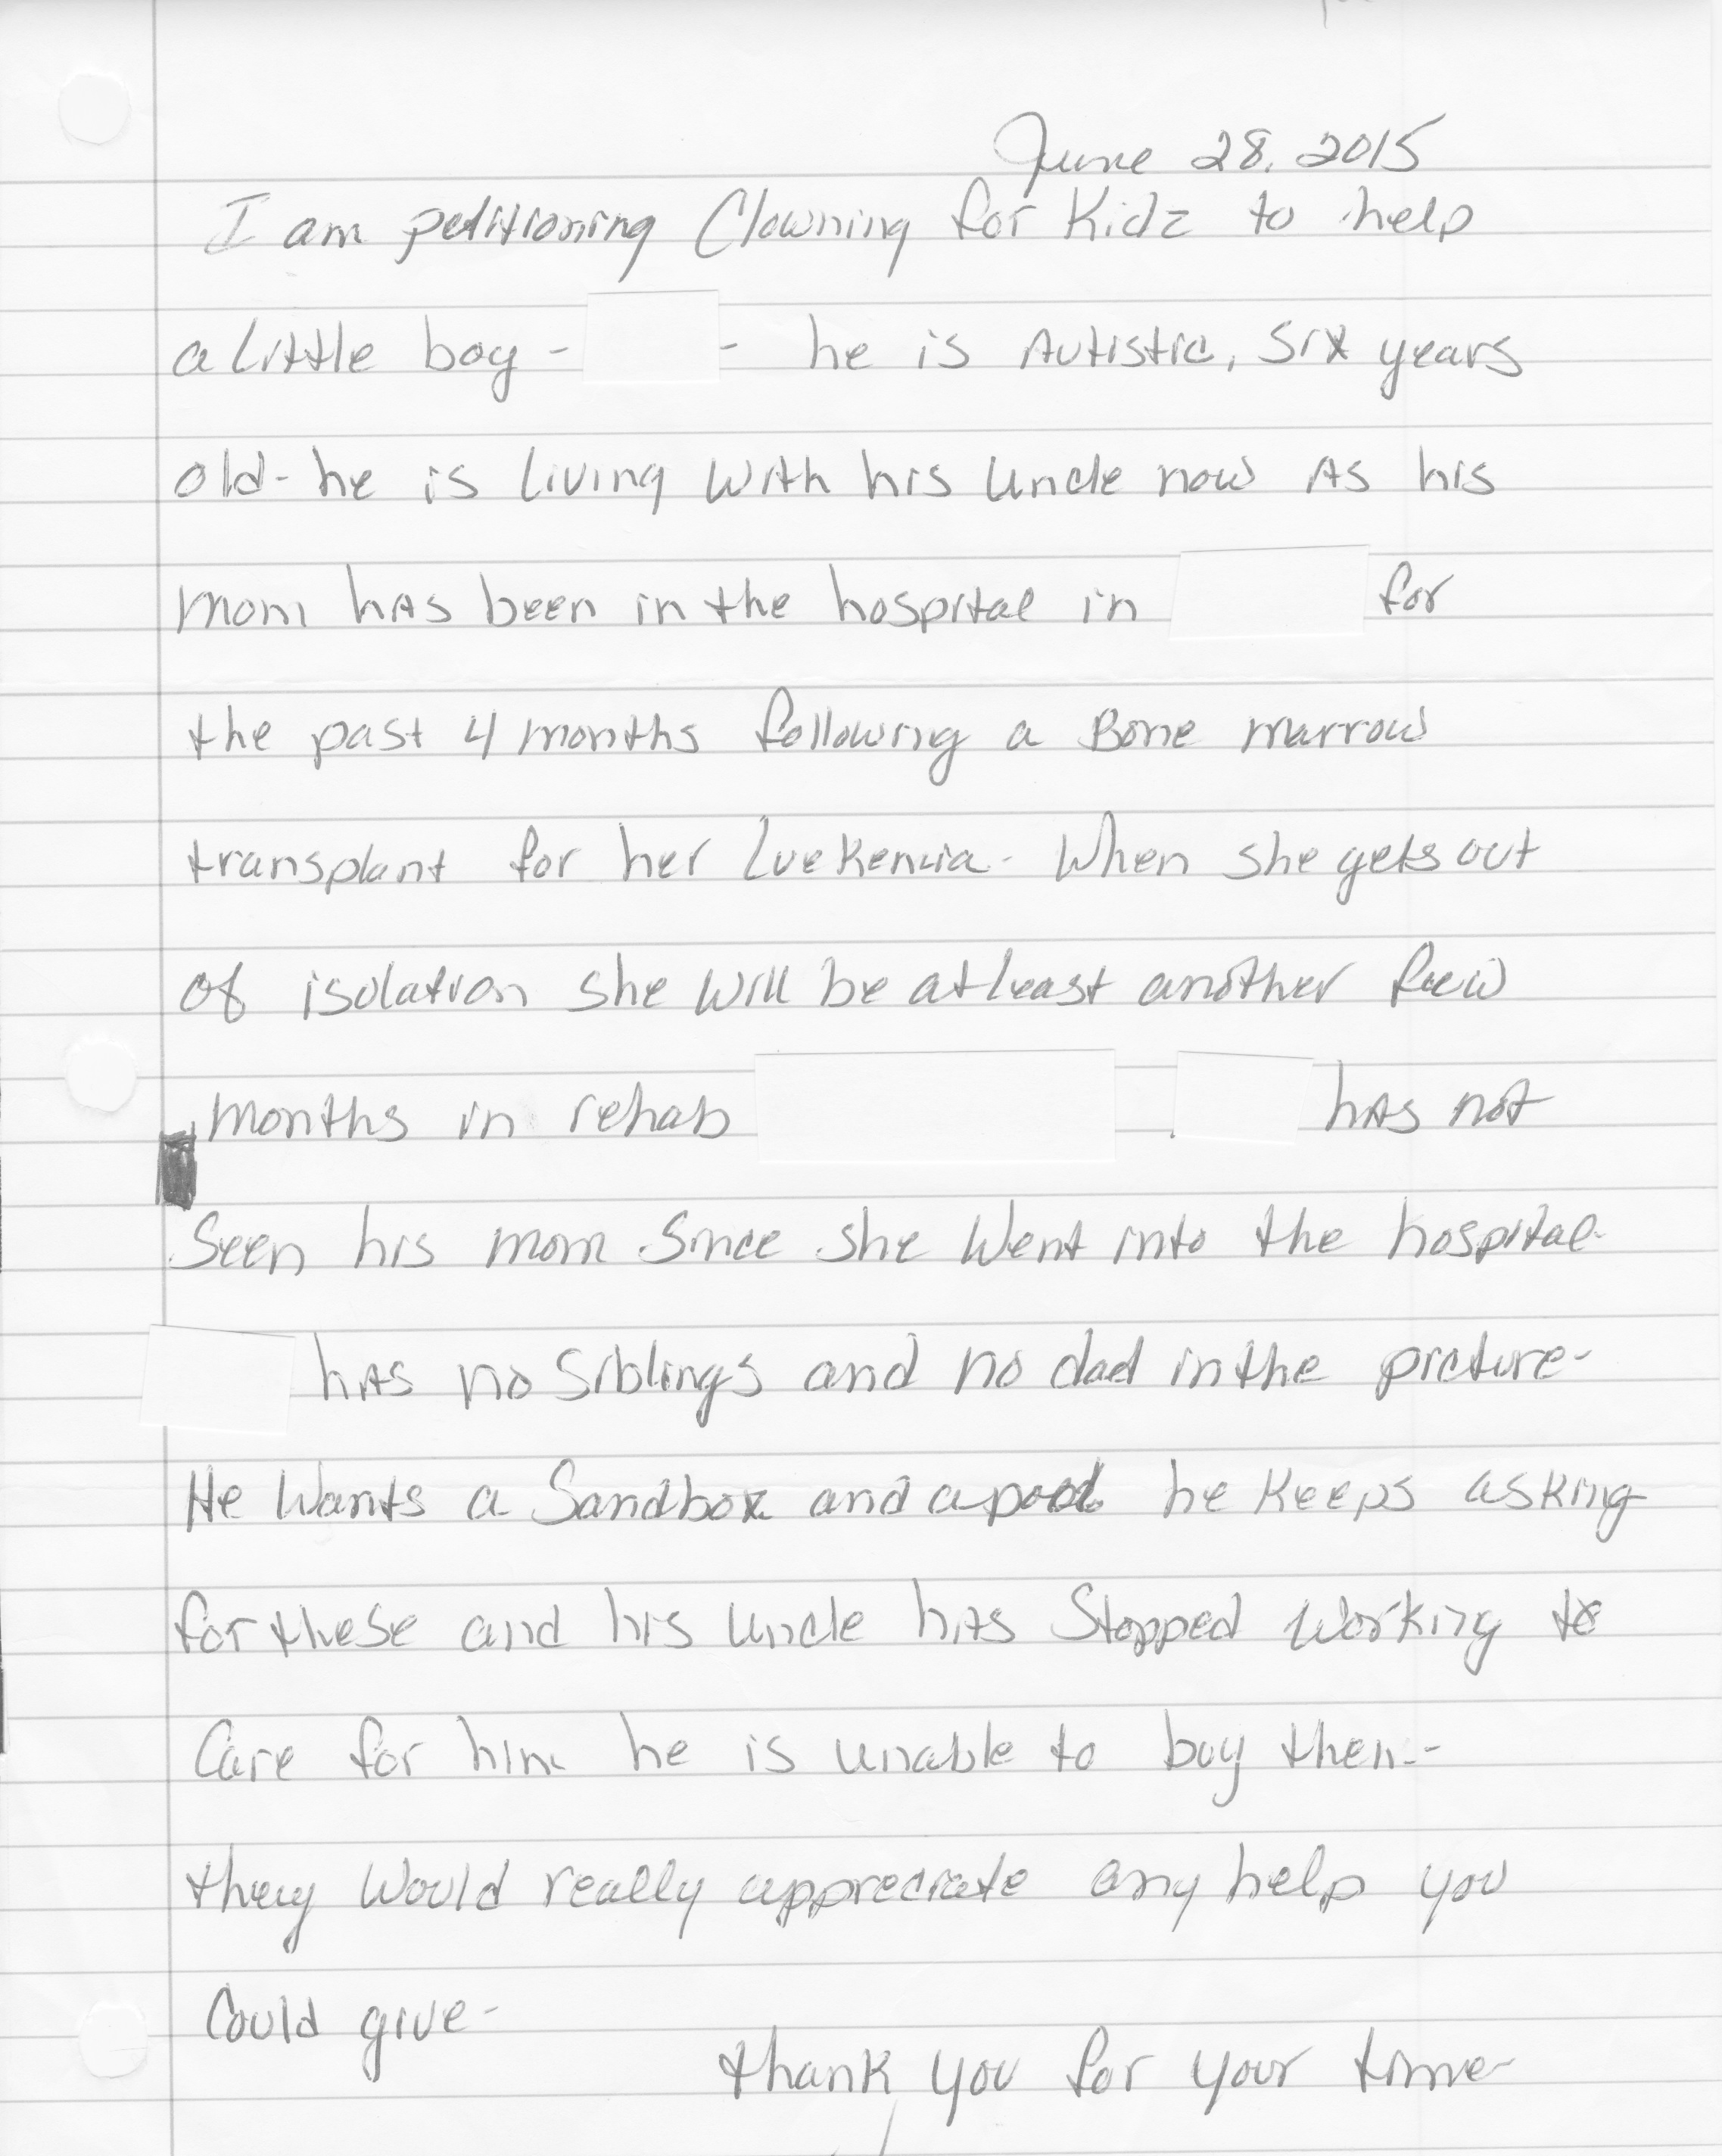 June 28, 2015
I am petitioning Clowning for Kidz to help
a little boy - - he is Autistic, six years
old - he is living with his Uncle now As his
mom hAs been in the hospital in for
the past 4 months following a Bone marrow
transplant for her Luekemia - When she gets out
of isolation she will be at least another few
months in rehab hAs not
Seen his mom Since she Went into the hospital.
hAs no siblings and no dad in the picture -
He Wants a Sandbox and a pool he Keeps asking
for these and his Uncle hAs Stopped Working to
Care for him he is unable to buy them -
they Would really appreciate any help you
Could give -
thank you for your time -